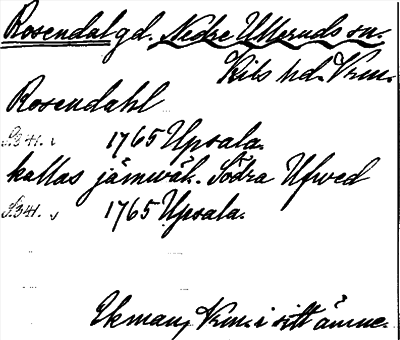 Rosendal gd. Nedre Ulleruds sn.
Kils hd. Vrm.
Rosendahl
S. 341. 1765 Upsala.
kallas jämväl. Södra Ufved
S. 341. 1765 Upsala.
Ekman, Vrm. i sitt ämne.